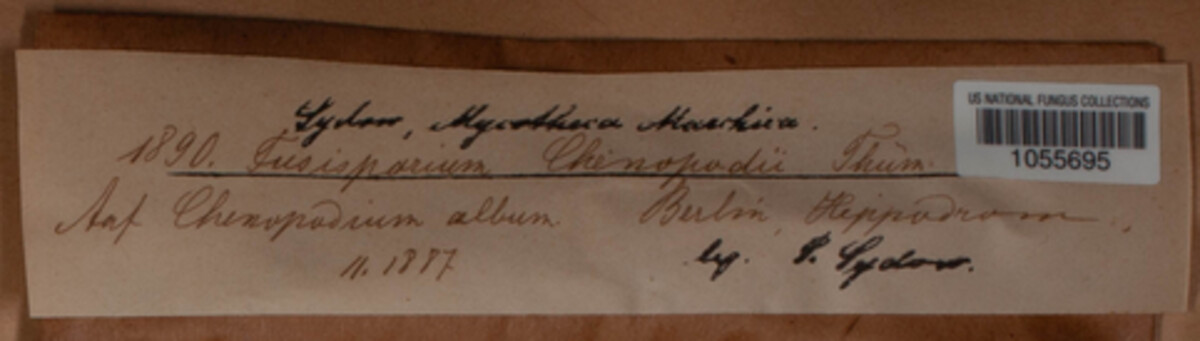 Sydow, Mycotheca Marchica.
US NATIONAL FUNGUS COLLECTIONS
1055695
1890. Fusisporium Chenopodii Thüm.
Auf Chenopodium album. Berlin, Hippodrom.,
11. 1887
leg. P. Sydow.